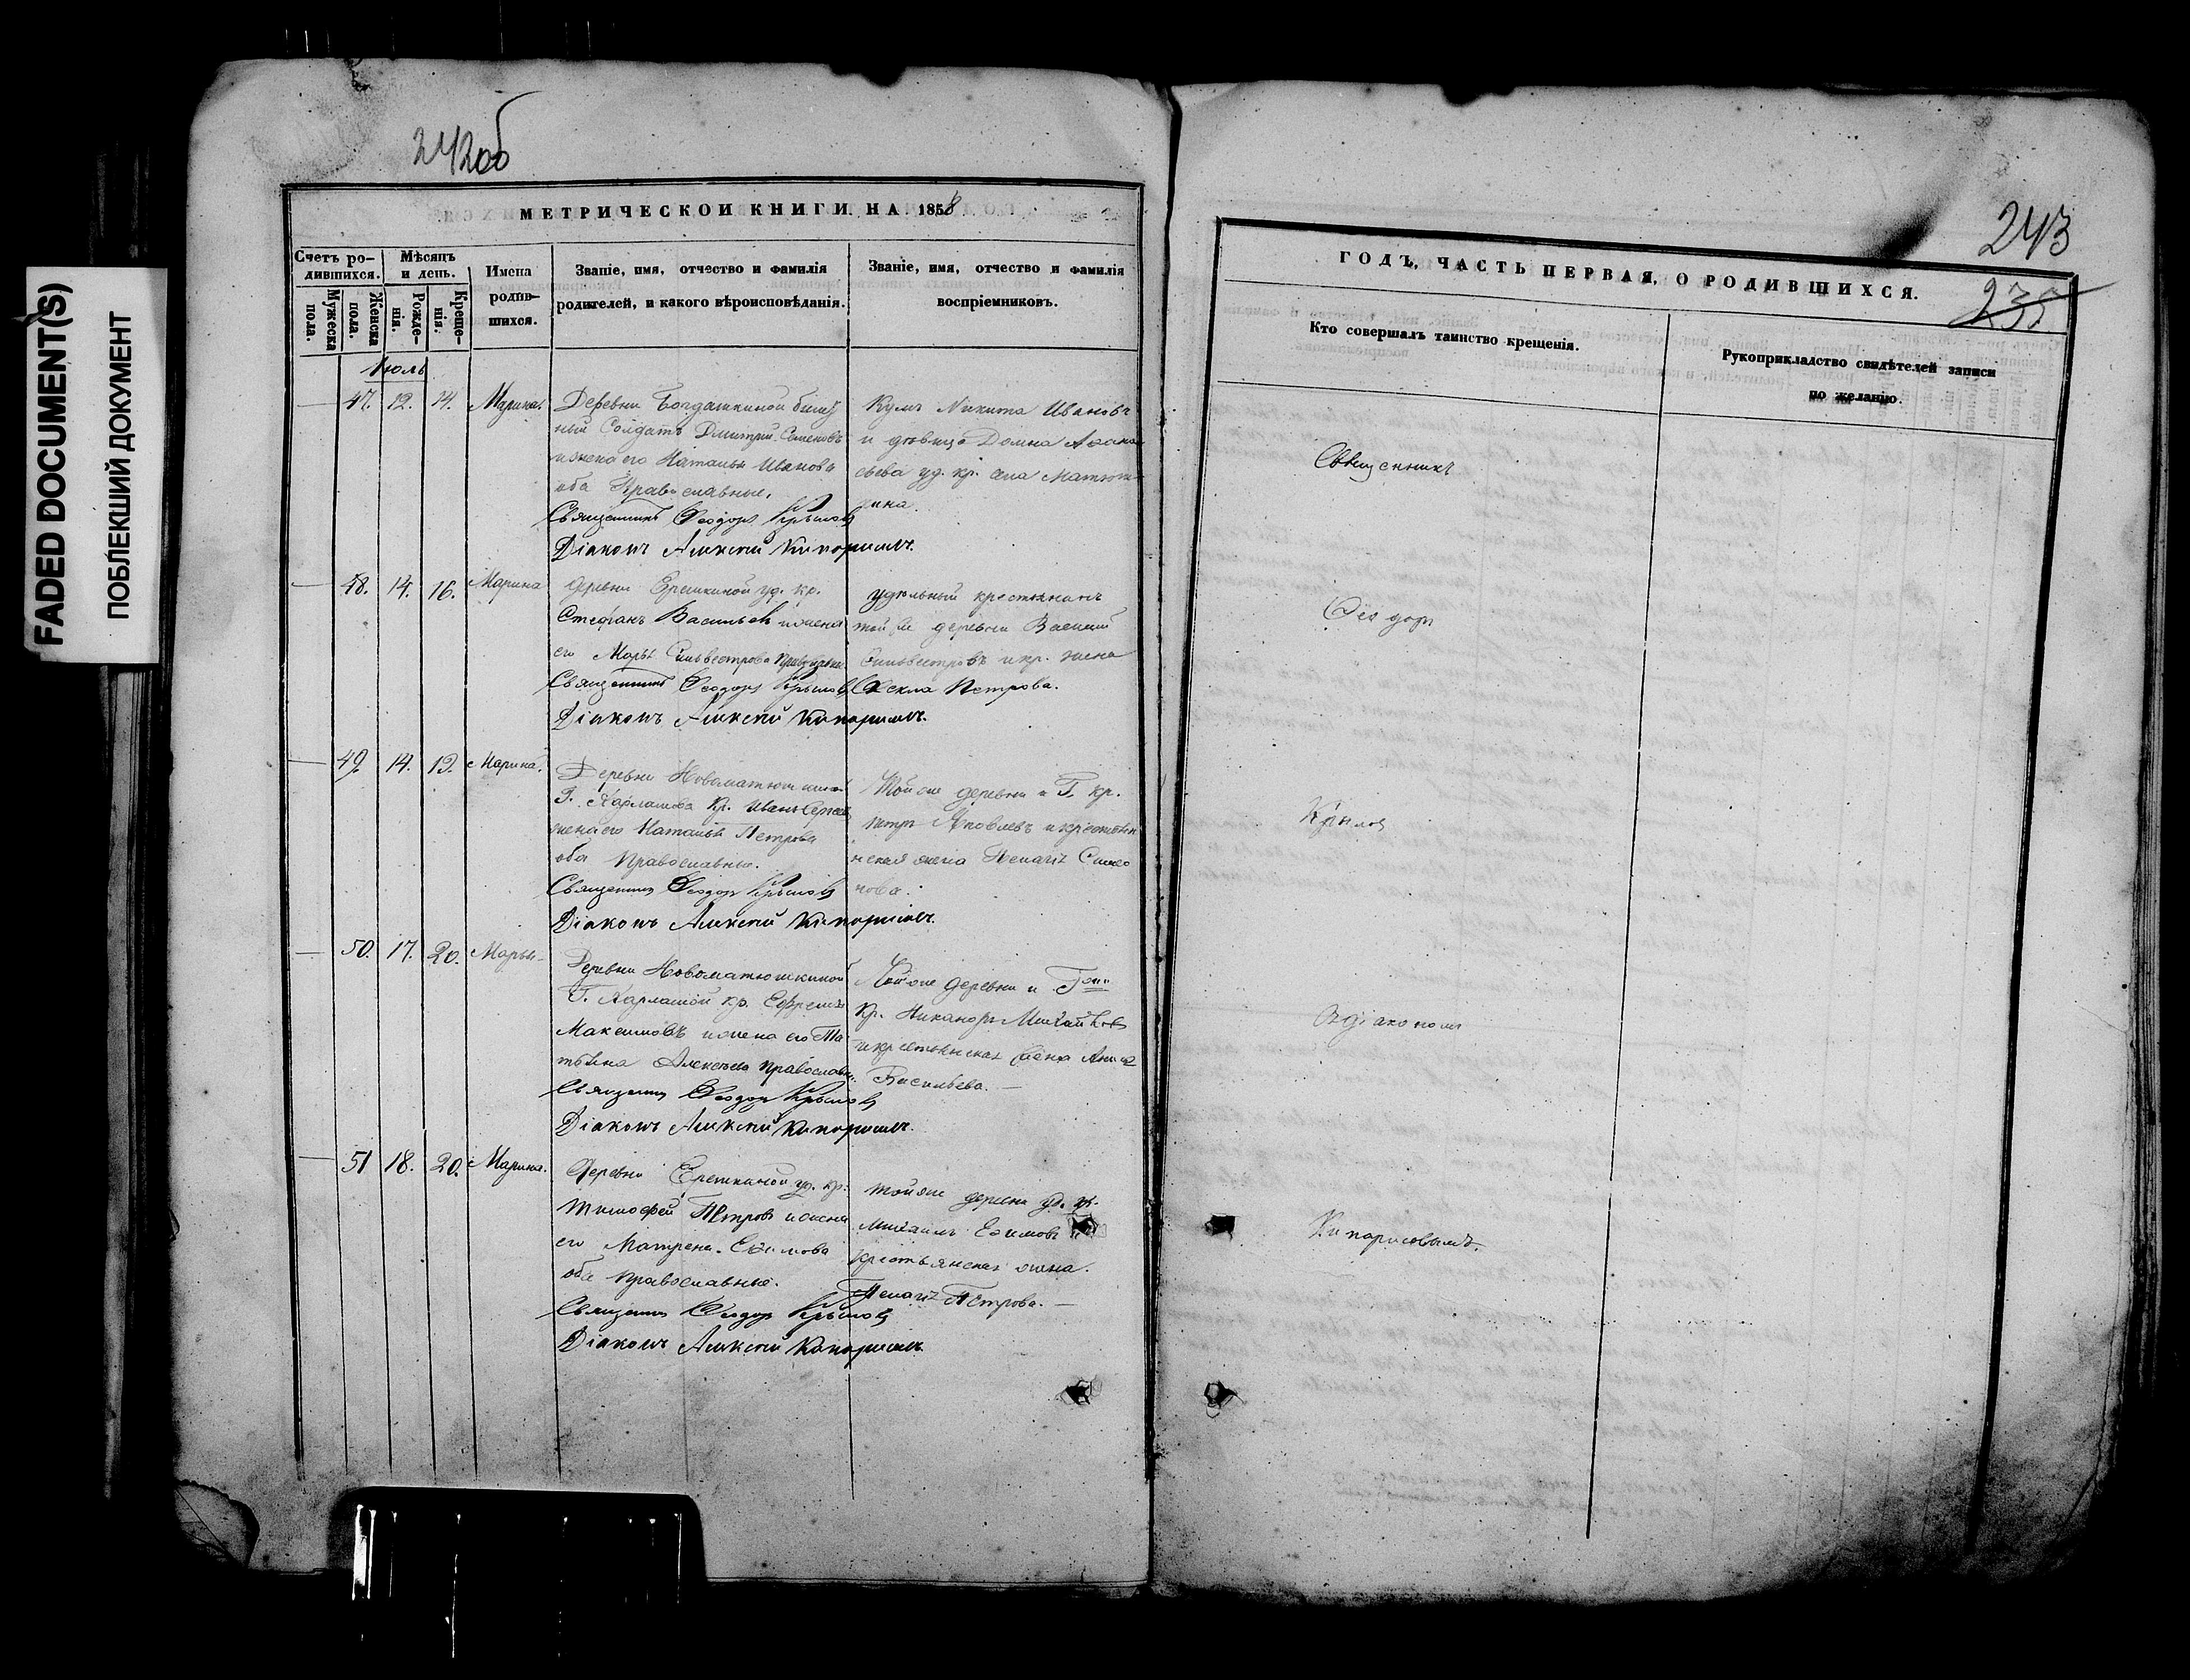 FADED DOCUMENT(S)
ПОБЛЕКШИЙ ДОКУМЕНТ
242об
МЕТРИЧЕСКОЙ КНИГИ НА 1858
Счетъ ро-
дившихся.
Мужеска пола.
Женска пола.
Мѣсяцъ
и день.
Рожде-
нія.
Креще-
нія.
Имена
родив-
шихся.
Званіе, имя, отчество и фамилія
родителей, и какого вѣроисповѣданія.
Званіе, имя, отчество и фамилія
воспріемниковъ.
Іюль
47. 12. 14. Марина.
Деревни Богдашкиной
ный Солдатъ Дмитрий Семеновъ
и жена его Наталья Иванова
оба Православные.
Священникъ Ѳеодоръ Крыловъ
Діаконъ Алексѣй Кипарисовъ.
Никита Ивановъ
и дѣвица Домна Аѳана
сьева уд. кр. села Матюш
кина.
48. 14. 16. Марина
деревни Ерешкиной уд. кр.
Стефанъ Васильевъ и жена
его Марья Сильвестрова
Священникъ Ѳеодоръ Крыловъ
Діаконъ Алексѣй Кипарисовъ.
удѣльный крестьянинъ
той же деревни Василий
Сильвестровъ и кр. жена
Ѳекла Петрова.
49. 14. 19. Марина.
Деревни Новоматюшкиной
Г. Карламова Кр. Иванъ Сергеевъ
жена его Наталья Петрова
оба Православные.
Священникъ Ѳеодоръ Крыловъ
Діаконъ Алексѣй Кипарисовъ.
Той же деревни и Г. кр.
Петръ Яковлевъ и крестьян
нская жена Пелагія Симео
нова.
50. 17. 20. Марья
Деревни Новоматюшкиной
Г. кр. Ефремъ
Максимовъ и жена его Та
тьяна Алексѣева православн.
Священникъ Ѳеодоръ Крыловъ
Діаконъ Алексѣй Кипарисовъ.
Той же деревни и Г
Кр. Никаноръ Михайловъ
и крестьянская жена Анна
Васильева.
51 18. 20. Марина.
Деревни Ерешкиной уд. кр.
Тимофей Петровъ и жена
его Матрена Ефимова
оба православные.
Священникъ Ѳеодоръ Крыловъ
Діаконъ Алексѣй Кипарисовъ
той же деревни уд. кр.
Михаилъ Ефимовъ
крестьянская жена.
Пелагія Петрова.
243
235
ГОДЪ, ЧАСТЬ ПЕРВАЯ, О РОДИВШИХСЯ.
Кто совершалъ таинство крещенія.
Рукоприкладство свидѣтелей записи
по желанію.
Священникъ
Ѳеодоръ
Крыловъ
съ діакономъ
Кипарисовымъ.